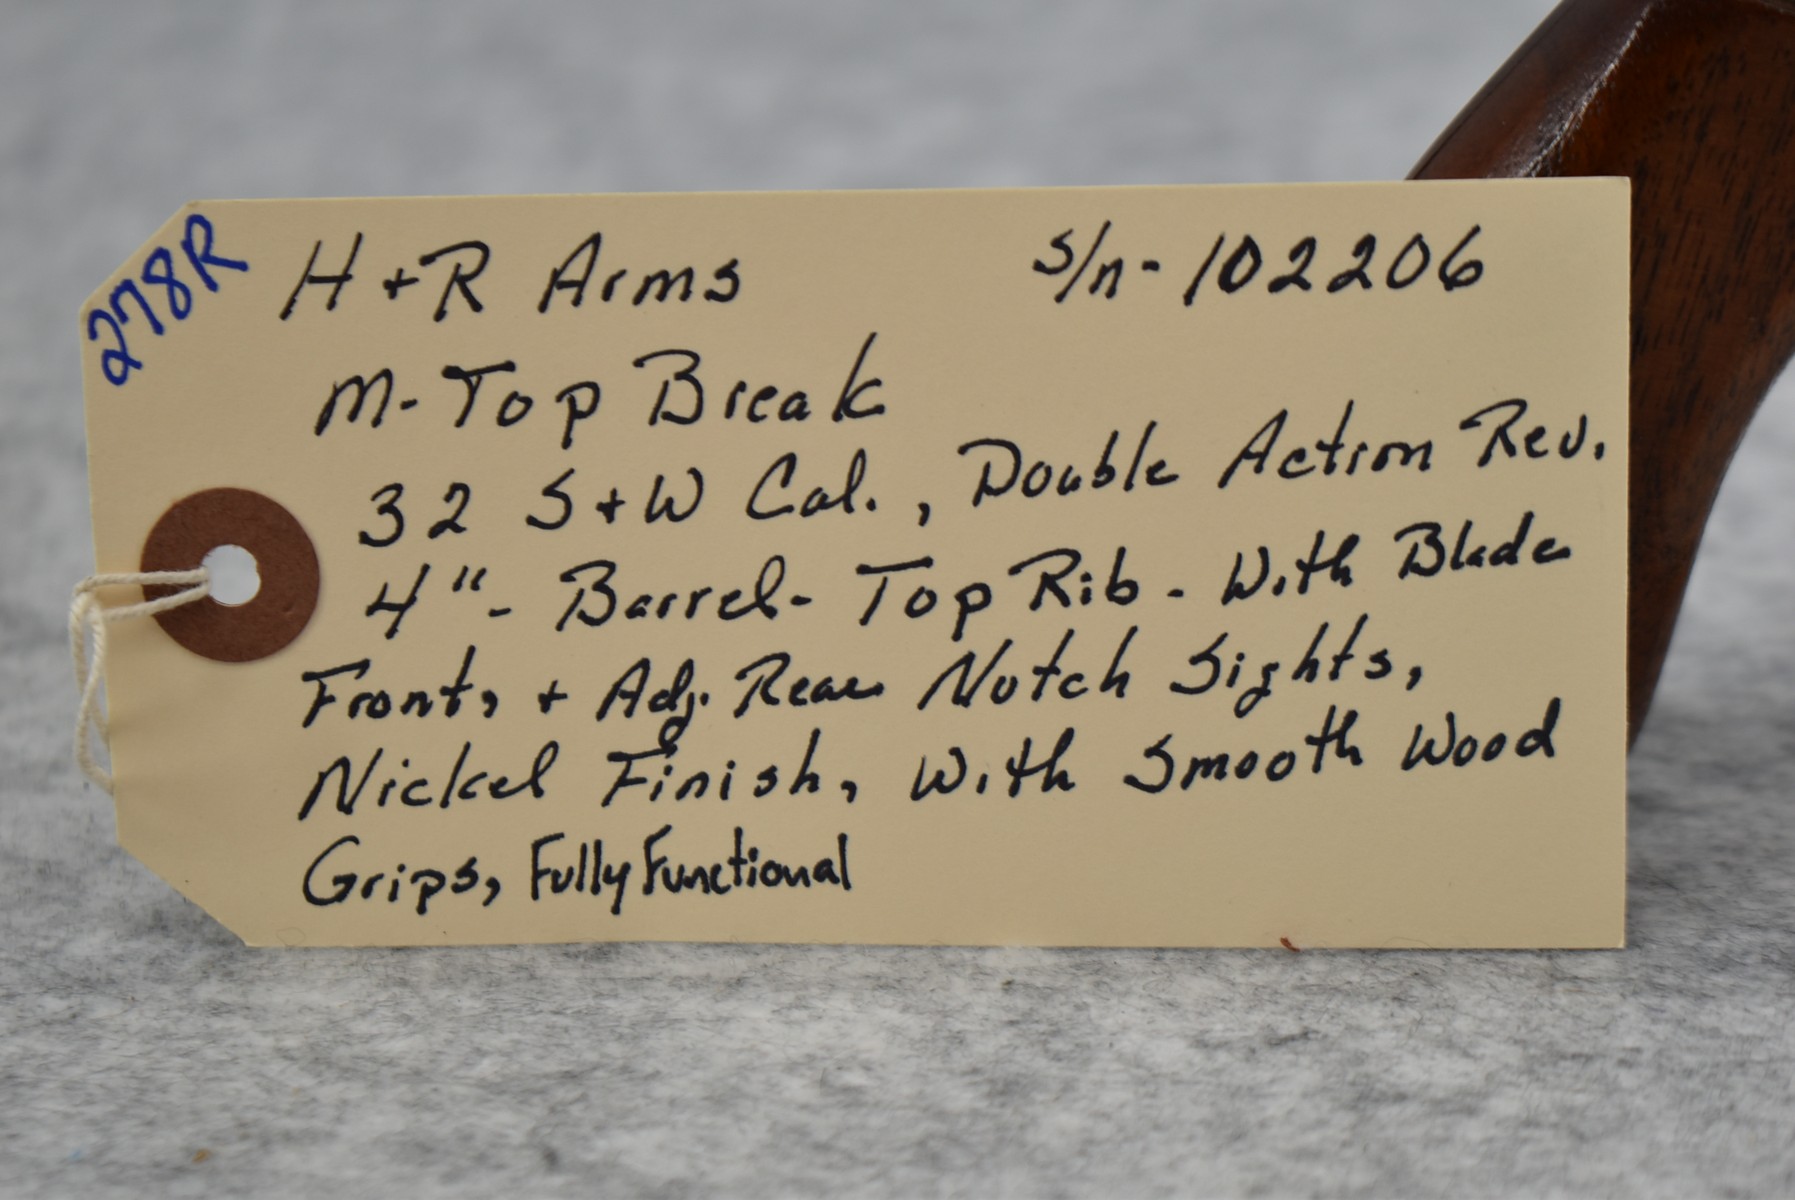 278R
H + R Arms s/n - 102206
M - Top Break
32 S + W Cal. , Double Action Rev.
4" - Barrel - Top Rib - With Blade
Front, + Adj. Rear Notch Sights,
Nickel Finish, With Smooth Wood
Grips, Fully Functional